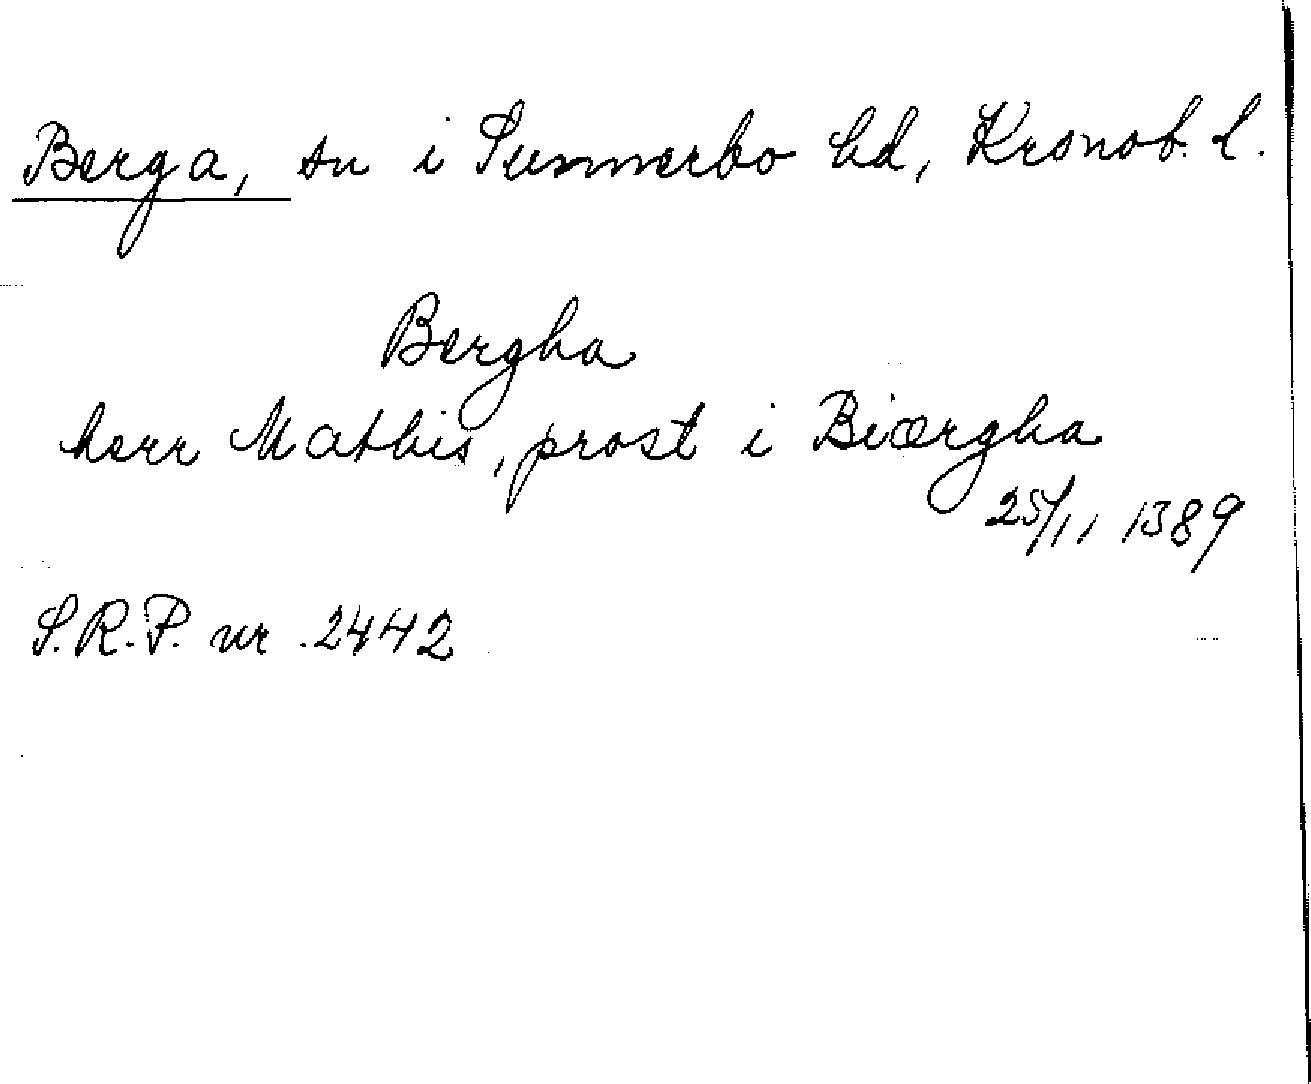 Berga, sn i Sunnerbo hd, Kronob. l.
Bergha
herr Mathis, prost i Biærgha
25/11 1389
S.R.P. nr 2442